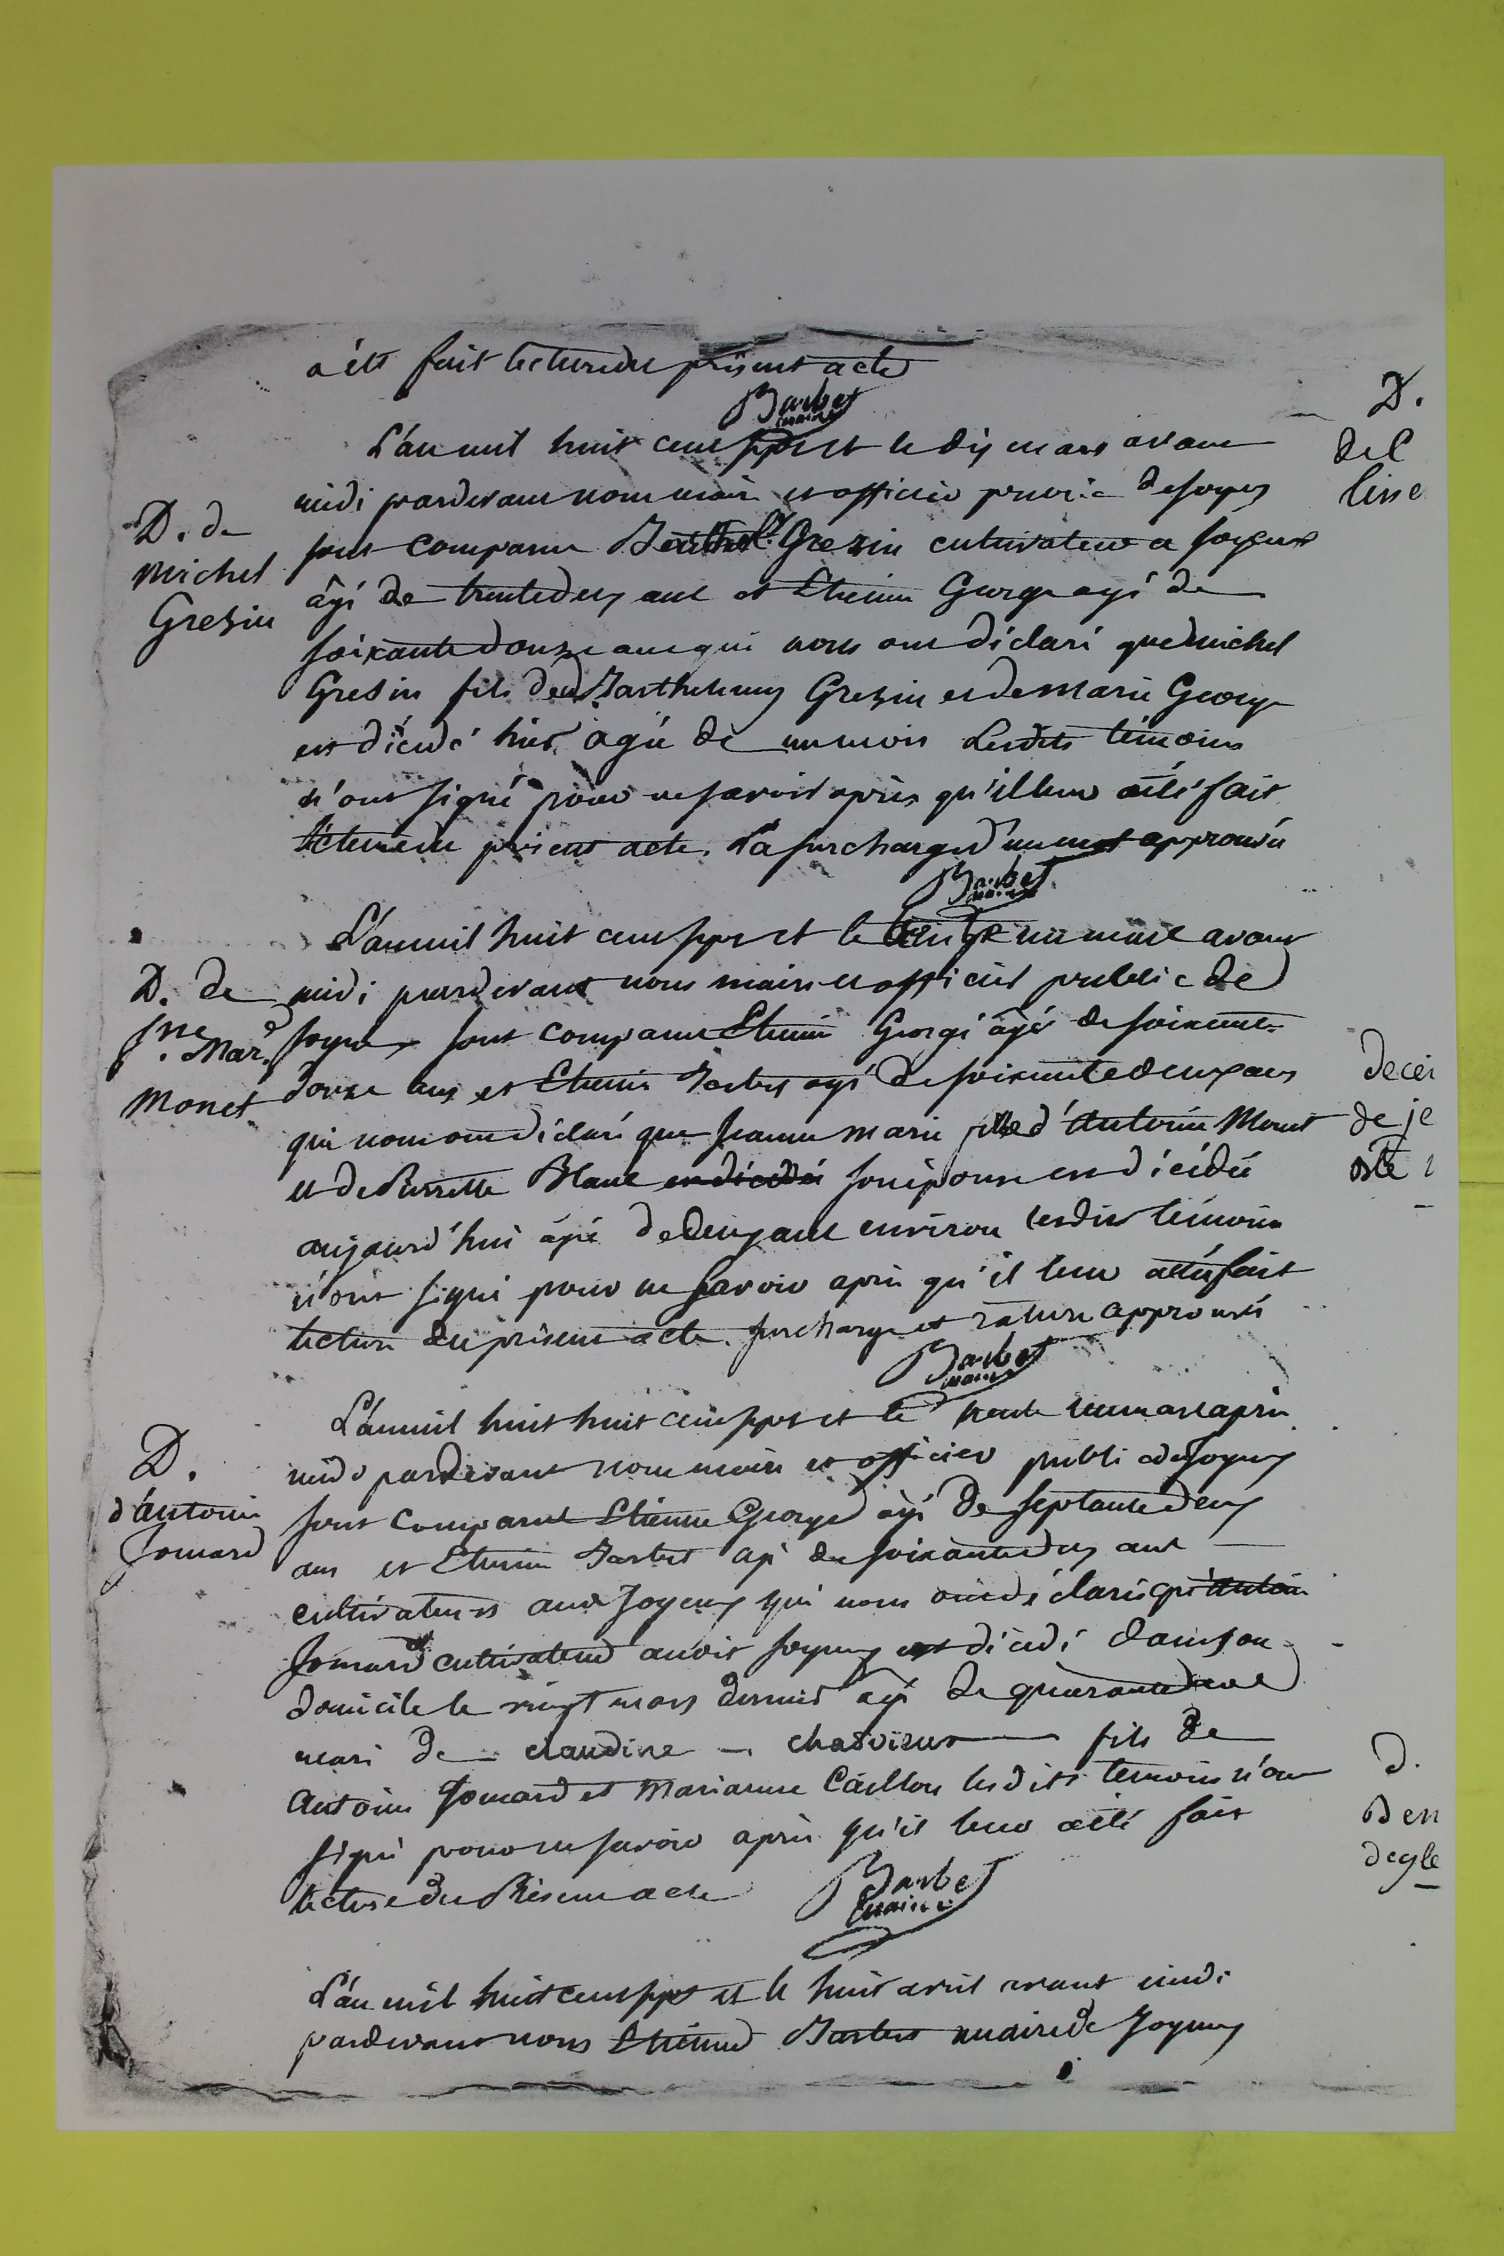 a été fait lecture du présent acte
Barbet
maire
L'an mil huit cent sept et le dix mars avant
midi pardevant nous maire et officier public de Joyeux
sont comparu Barthel. Grezin cultivateur a Joyeux
âgé de trente deux ans et Etienne George agé de
soixante douze ans qui nous ont déclaré que michel
Grezin fils de Barthelemy Grezin et de Marie George
est décédé hier agée de un mois Lesdits témoins
n'ont signé pour ne savoir après qu'il leur a été fait
lecture du présent acte. La surcharge d'un mot approuvée
Barbet
maire
D. de
Michel
Grezin
L'an mil huit cent sept et le mars avant
midi pardevant nous maire et officier public de
Joyeux sont comparu Etienne George âgé de soixante
douze ans et Etienne Barbet agé de soixante deux ans
qui nous ont déclaré que Jeanne marie fille d'Antoine Monet
et de Pierrette Blanc est décédée est décédée
aujourd'hui âgée de deux ans environ lesdits témoins
n'ont signé pour ne savoir après qu'il leur a été fait
lecture du présent acte. surcharge et rature approuvés
Barbet
maire
D. de
Jne. Mar.
Monet
L'an mil huit huit cent sept et le trente un mars après
midi pardevant nous maire et officier public de Joyeux
sont comparu Etienne George agé de septante deux
ans et Etienne Barbet agé de soixante deux ans
cultivateurs audit Joyeux qui nous ont déclaré qu'Antoine
Jomard cultivateur audit Joyeux est décédé dans son
domicile le vingt mars dernier agé de quarante
mari de claudine fils de
Antoine Jomard et Marianne Caillon lesdits temoins n'ont
signé pour ne savoir après qu'il leur a été fait
lecture du Présent acte
Barbet
maire
D.
d'antoine
Jomard
L'an mil huit cent sept et le huit avril avant midi
pardevant nous Etienne Barbet maire de Joyeux
D.
del
lisse
decer
de je
D.
den
degle